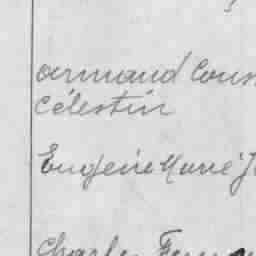 armand Cons
Célestin
Eugène Marie J
Charles Fern